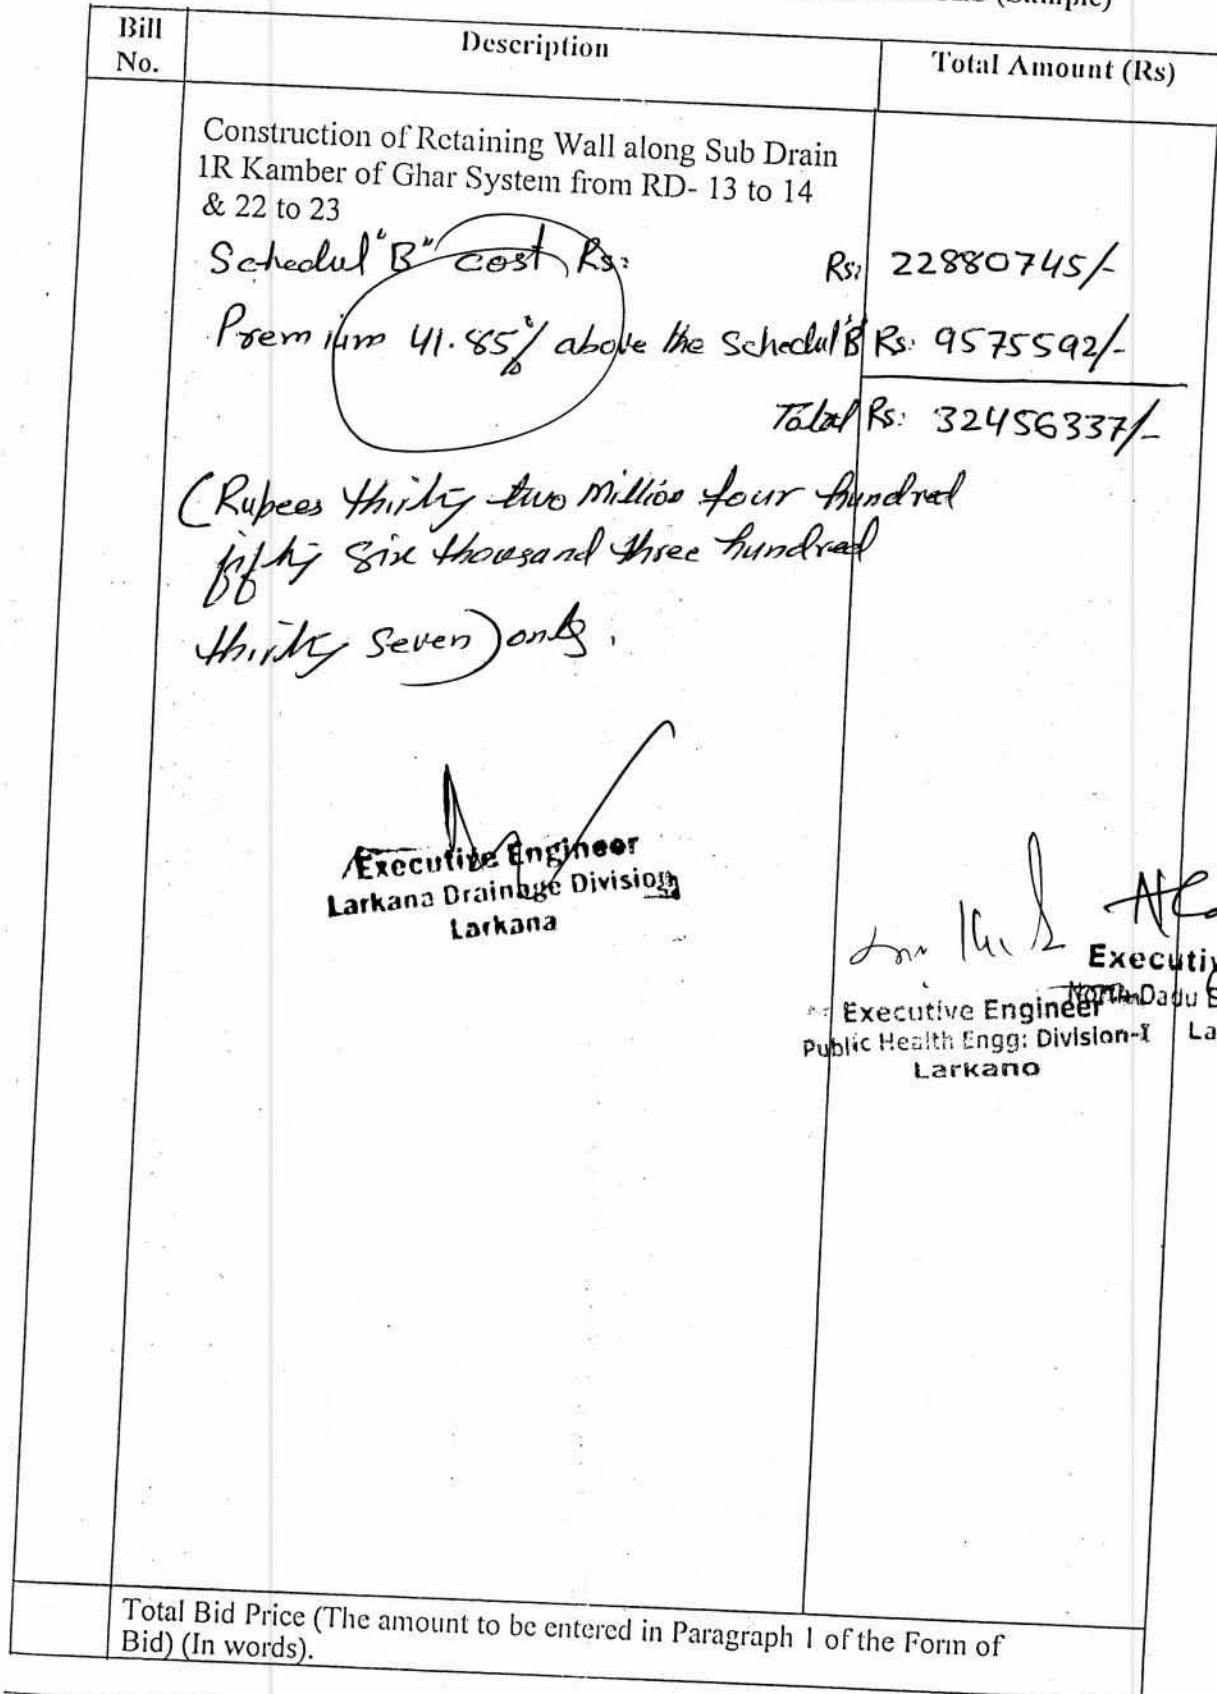 (Sample)
Bill No.
Description
Total Amount (Rs)
Construction of Retaining Wall along Sub Drain
1R Kamber of Ghar System from RD- 13 to 14
& 22 to 23
Schedul "B" cost Rs: Rs: 22880745/-
Premium 41.85% above the Schedul "B" Rs: 9575592/-
Total Rs: 32456337/-
(Rupees thirty two million four hundred
fifty six thousand three hundred
thirty seven) only.
Executive Engineer
Larkana Drainage Division
Larkana
Executive Engineer
Public Health Engg: Division-I
Larkano
Executiv
North Dadu S
La
Total Bid Price (The amount to be entered in Paragraph 1 of the Form of
Bid) (In words).